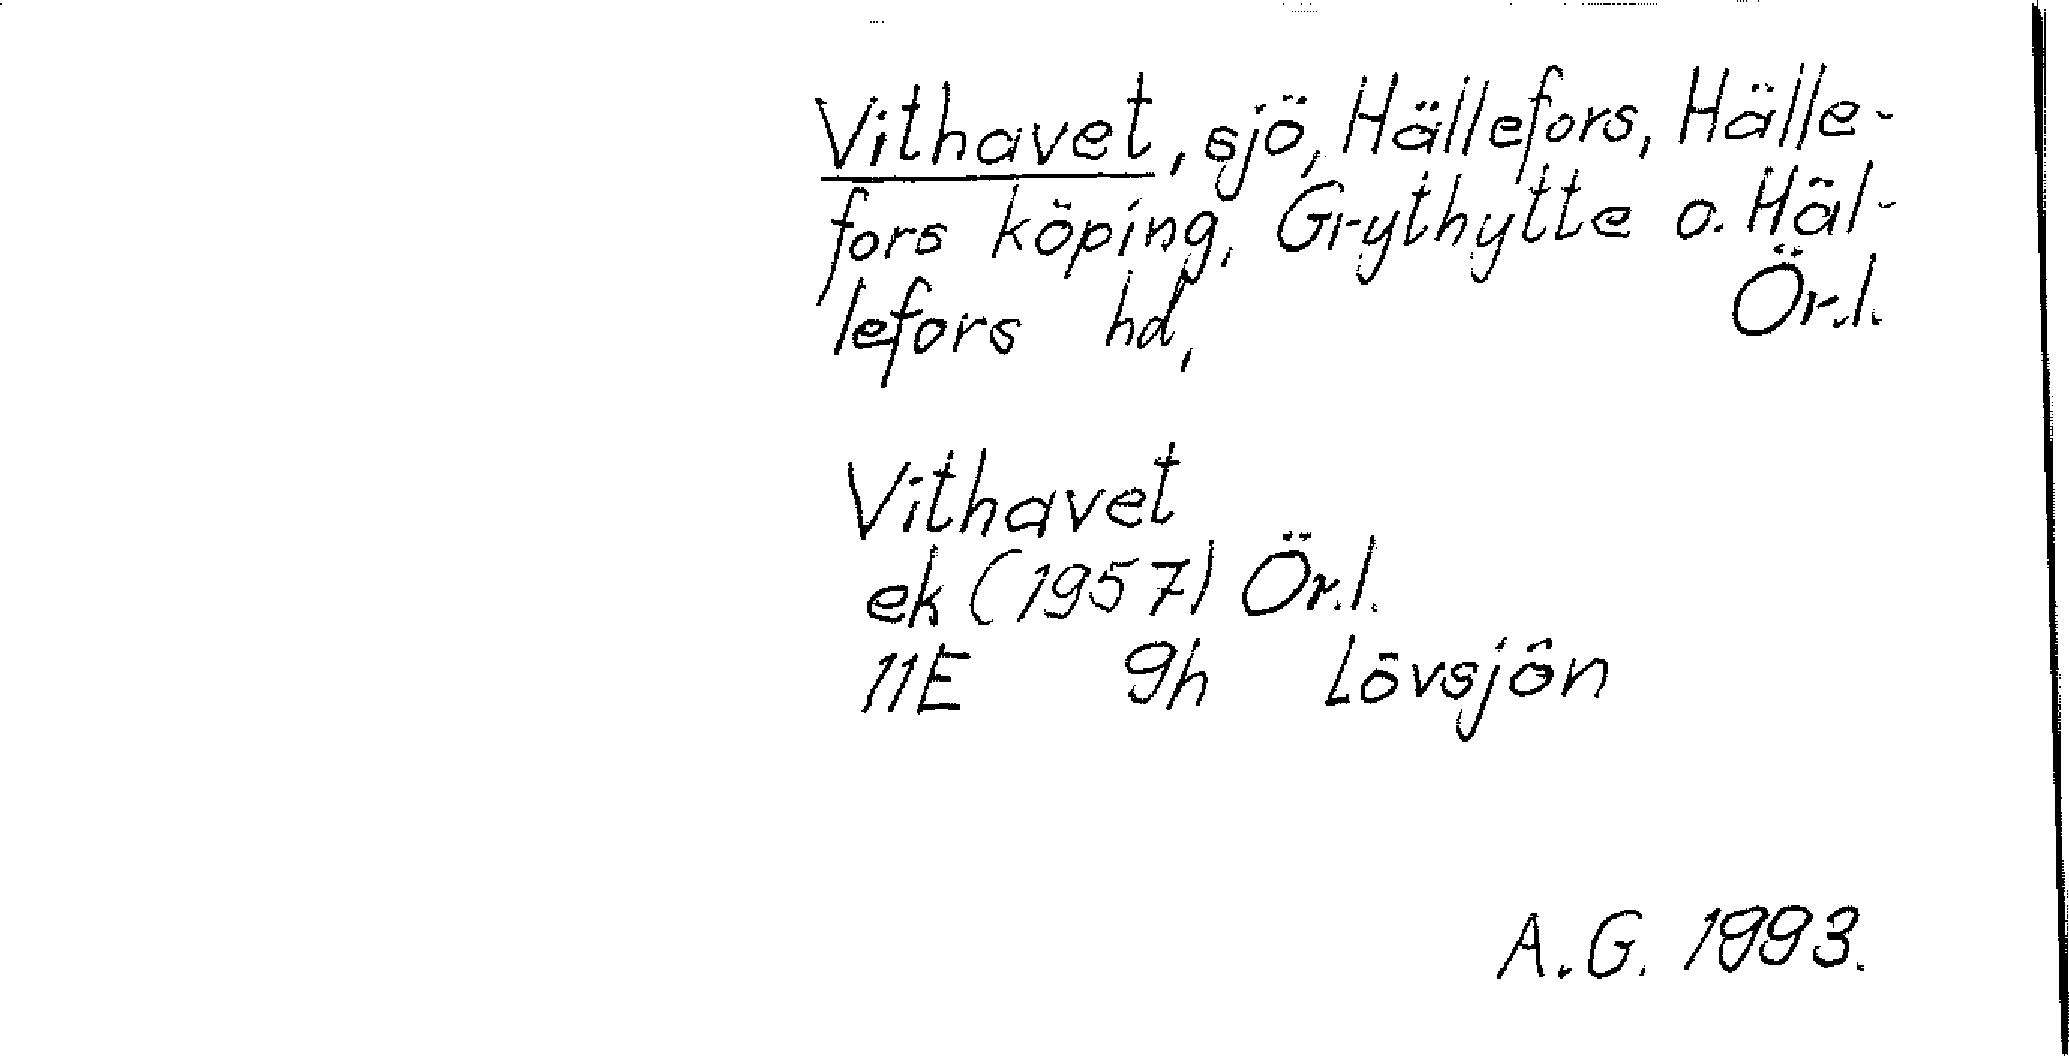 Vithavet, sjö, Hällefors, Hälle-
fors köping, Grythytte o. Häl-
lefors hd, Ör.l.
Vithavet
ek (1957) Ör.l.
11E 9h Lövsjön
A.G. 1993.